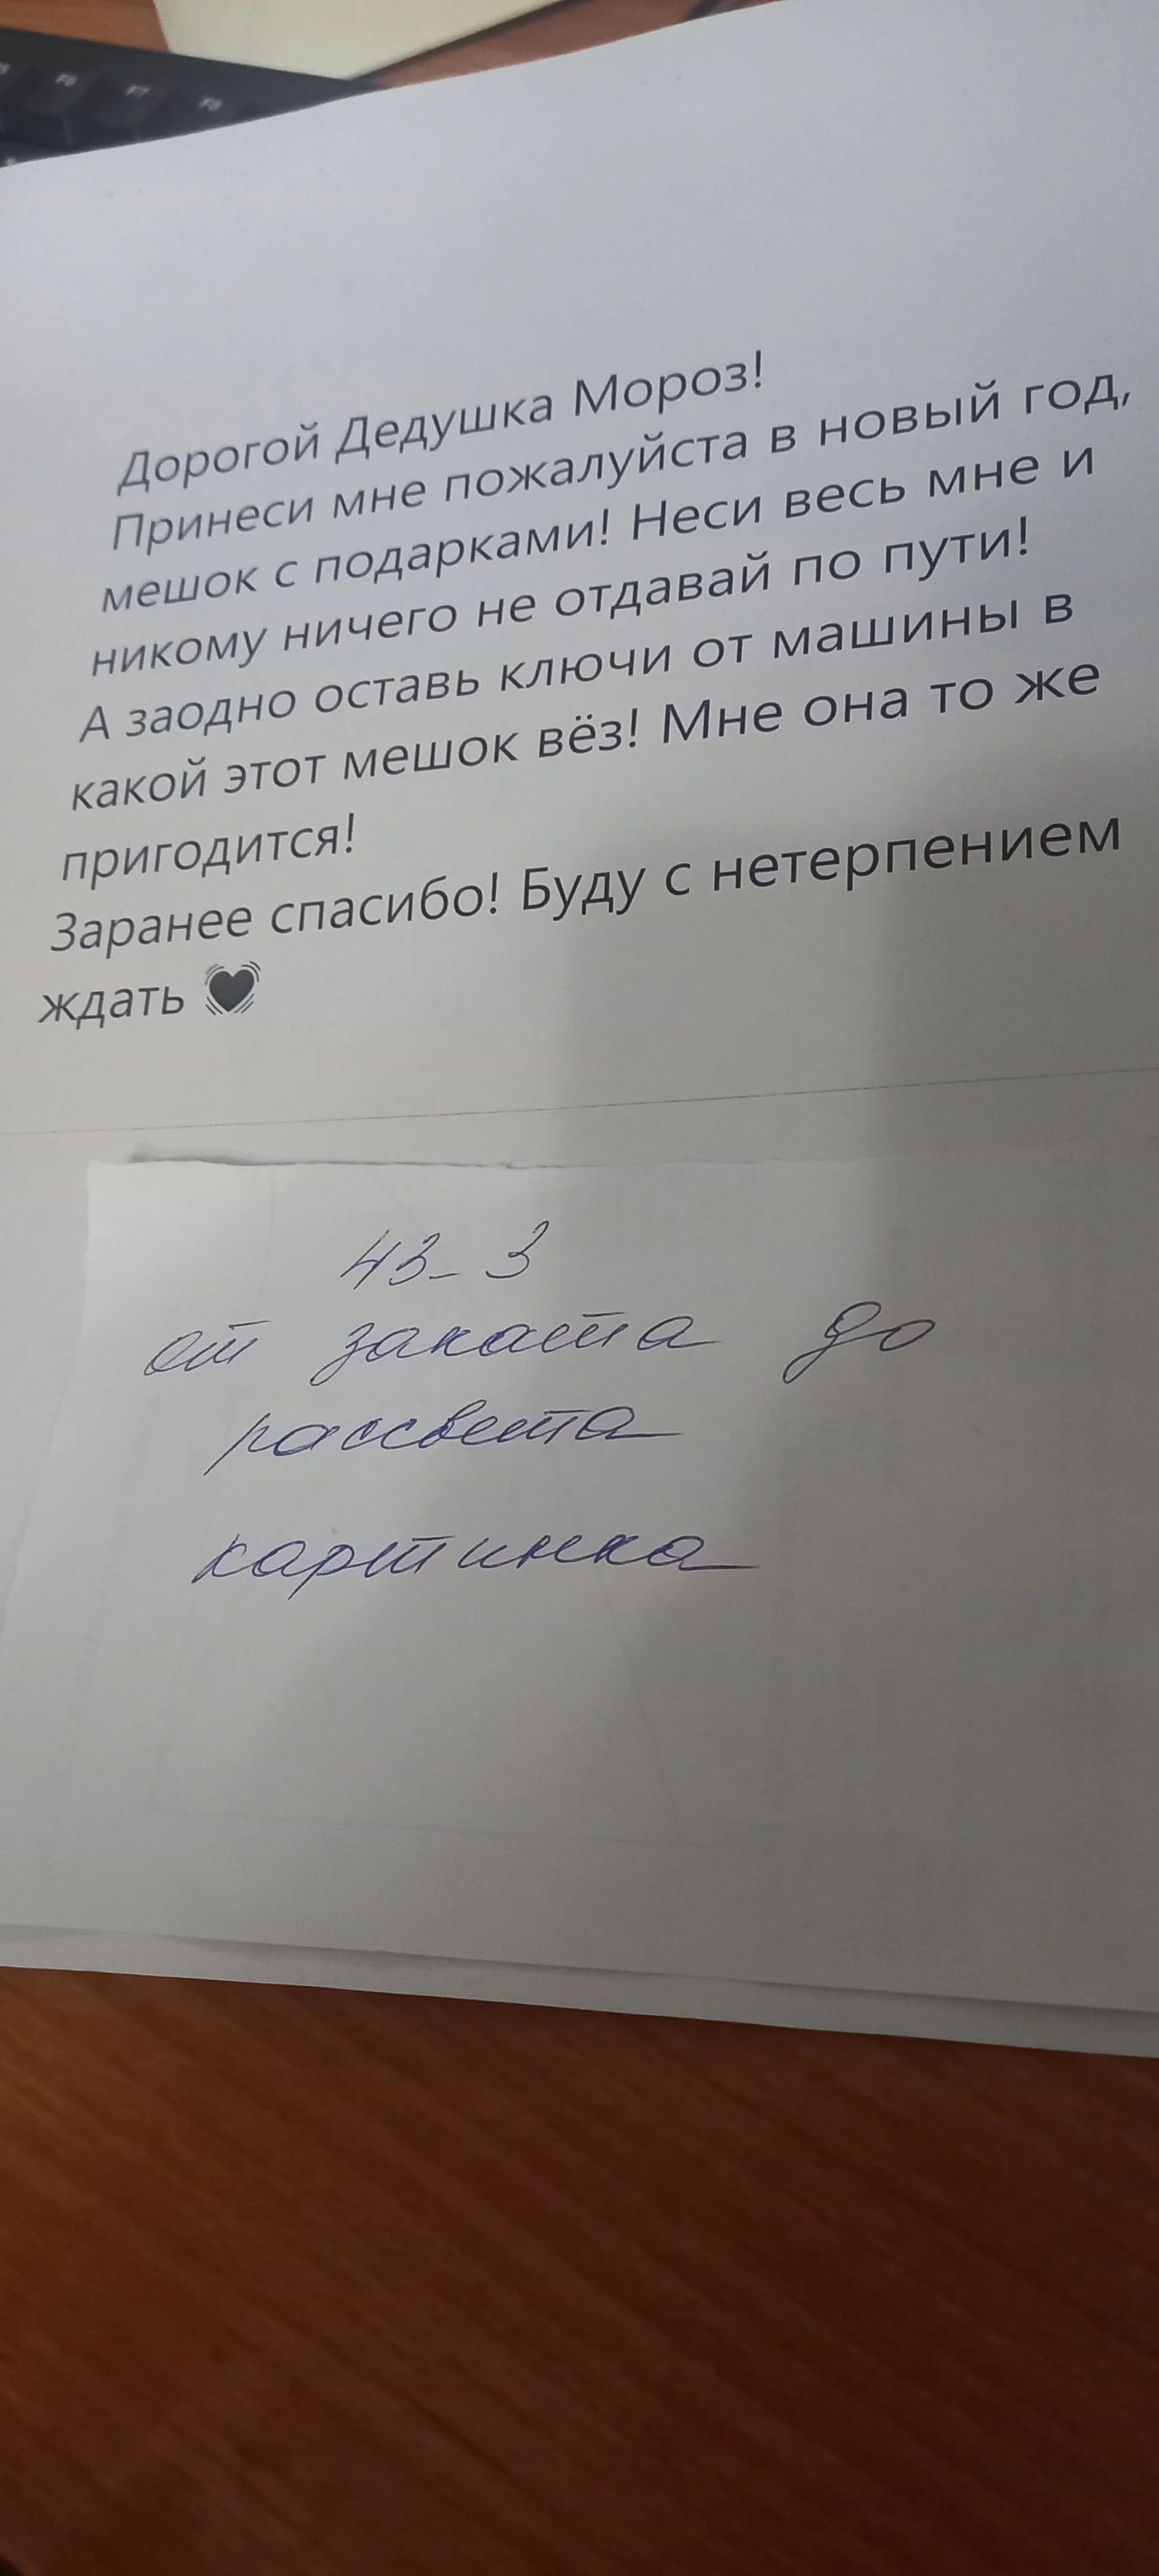 F6 F7 F8
Дорогой Дедушка Мороз!
Принеси мне пожалуйста в новый год,
мешок с подарками! Неси весь мне и
никому ничего не отдавай по пути!
А заодно оставь ключи от машины в
какой этот мешок вёз! Мне она то же
пригодится!
Заранее спасибо! Буду с нетерпением
ждать 💓
43-3
от заката до
рассвета
картинка